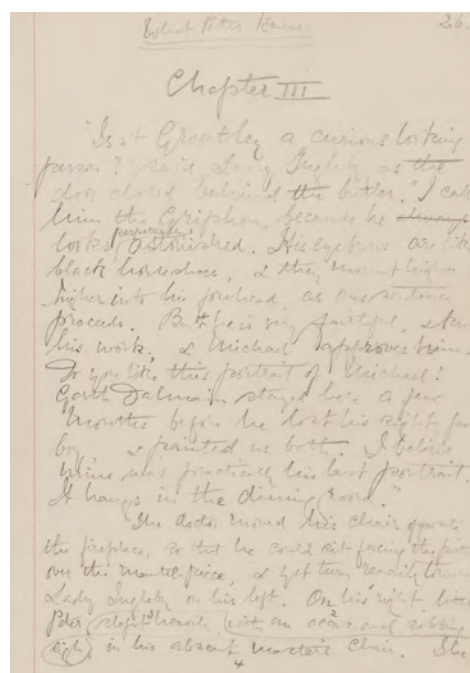 What Peter Knew 36.
Chapter III
"Isn't Groatley a curious looking
person?" said Lady Ingleby as the
door closed behind the butler. "I call
him the Gryphon, because he always
looks perpetually astonished. His eyebrows are like
black horseshoes, & they mount higher &
higher into his forehead, as one's sentence
proceeds. But he is very faithful, & knows
his work, & Michael approves him.
Do you like this portrait of Michael?
Garth Dalmain stayed here a few
months before he lost his sight, poor
boy, & painted us both. I believe
mine was practically his last portrait.
It hangs in the dining room."
The doctor moved his chair opposite
the fireplace, so that he could sit facing the picture
over the mantel-piece, & yet turn readily towards
Lady Ingleby on his left. On his right, little
Peter slept heavily, with an occasional sobbing
sigh, in his absent master's chair. The